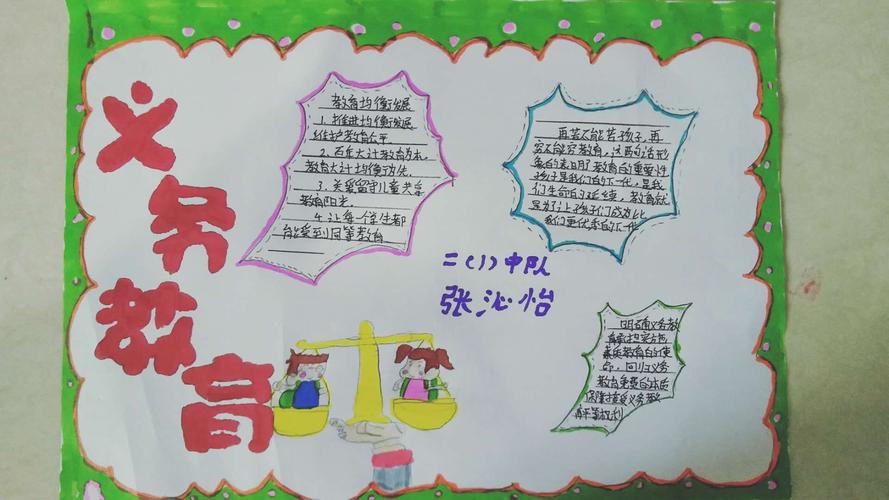 义
务
教
育
教育均衡发展
1. 推进均衡发展
维护教育公平
2. 百年大计教育为本,
教育大计均衡为先.
3. 关爱留守儿童共享
教育阳光.
4. 让每个学生都
能受到同等教育
再苦不能苦孩子,再
穷不能穷教育,这两句话形
象的表明了教育的重要性
孩子是我们的下一代,是我
们生命的延续,教育就
是为了让孩子们成为比
我们更优秀的下一代
二(1)中队
张沁怡
明确义务教
育承担实施
素质教育的使
命,回归义务
教育免费的本质
保障接受义务教
育平等权利